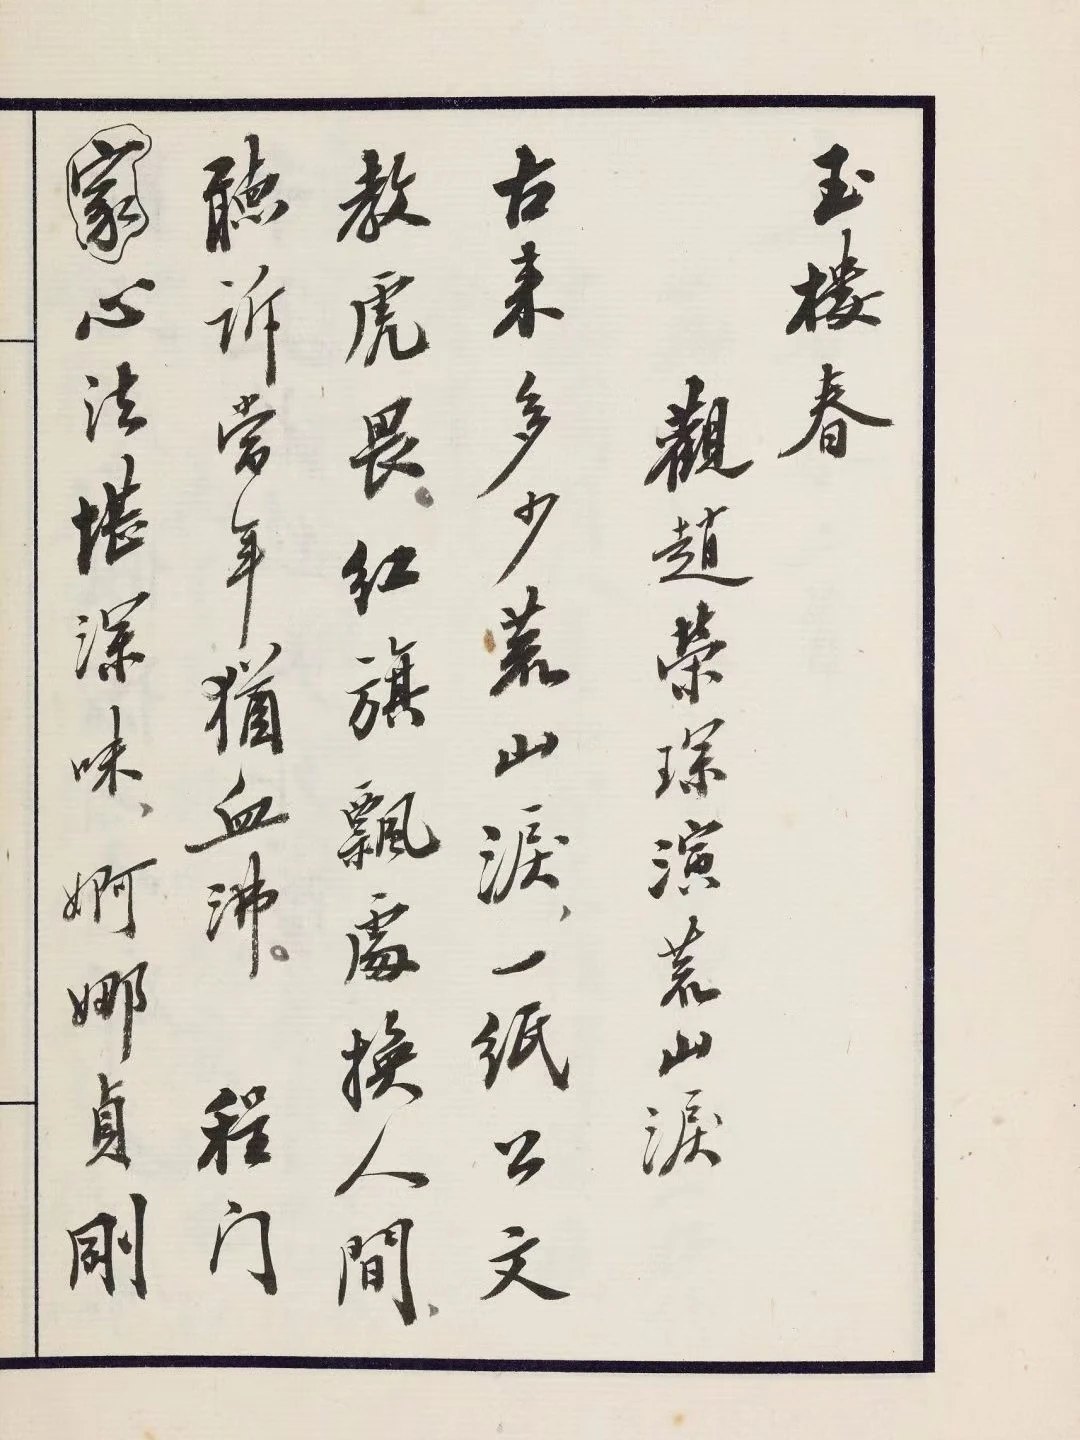 玉楼春
觀趙榮琛演荒山淚
古来多少荒山淚、一紙公文
教虎畏。红旗飄處換人間、
聽訴當年猶血沸。 程门
家心法堪深味、婀娜貞剛